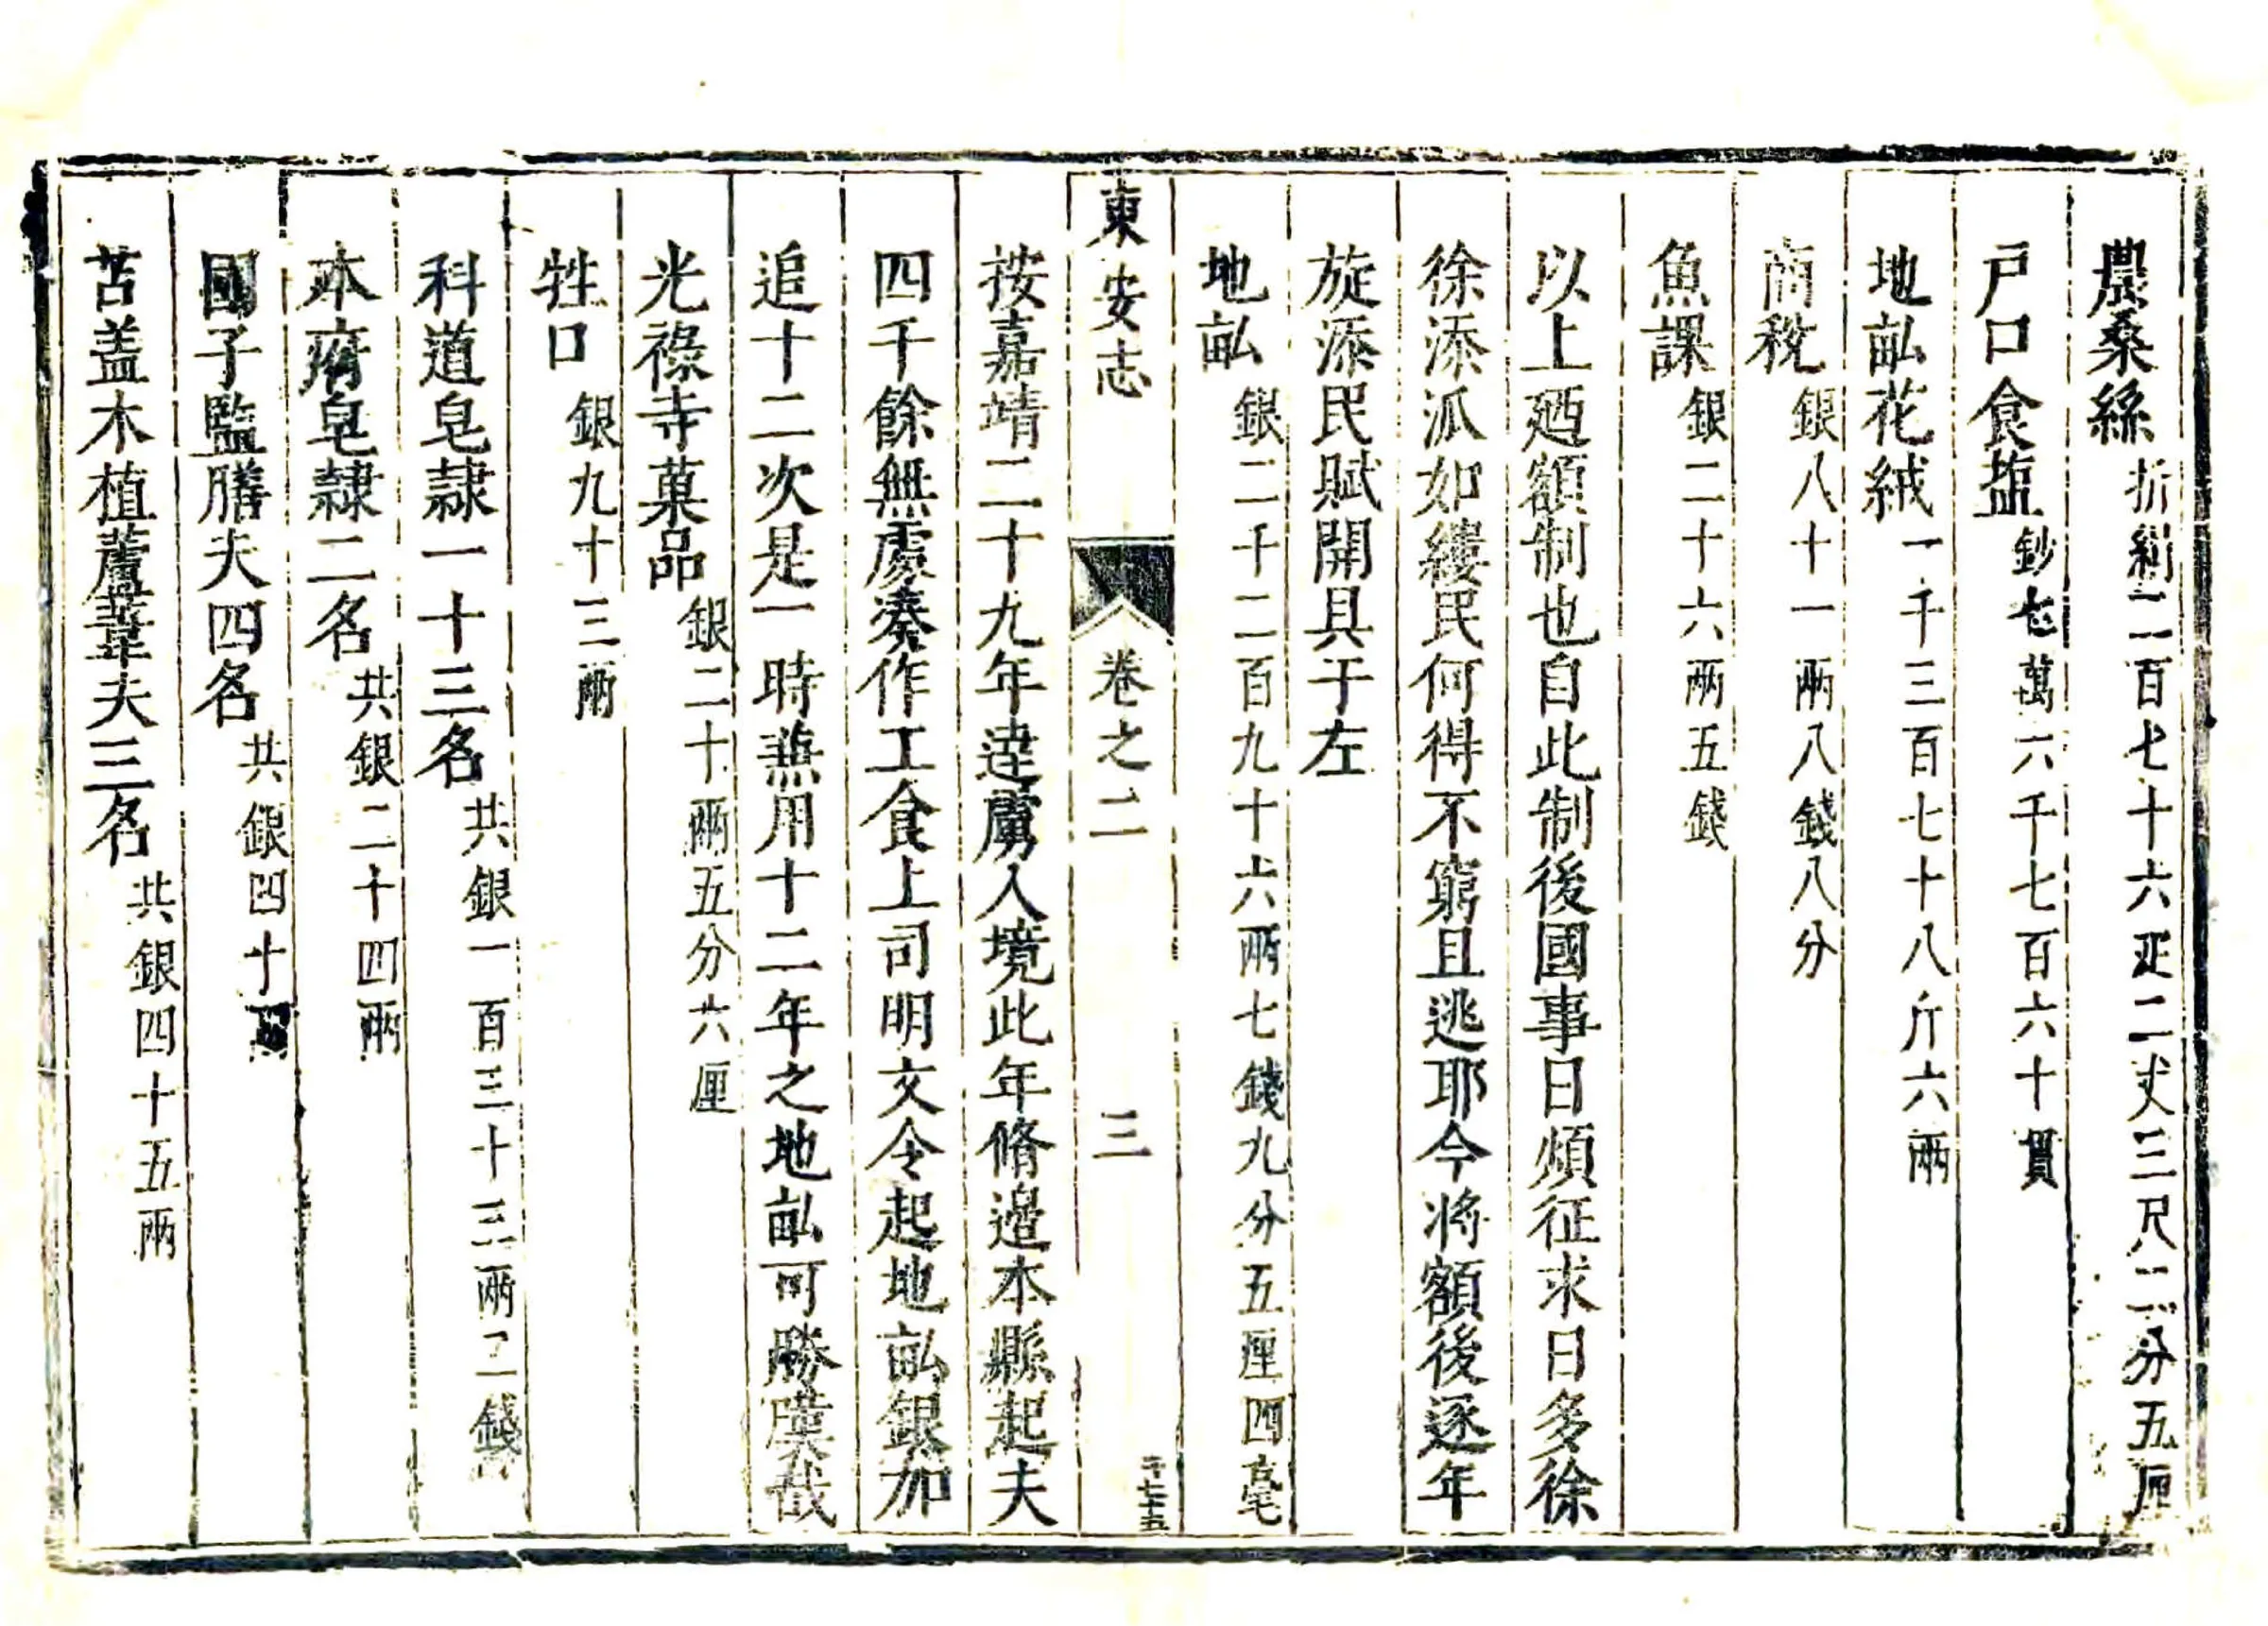 農桑絲折絹二百七十六疋二丈三尺二分五厘
戸口食塩鈔七萬六千七百六十貫
地畝花絨一千三百七十八斤六兩
商稅銀八十一兩八錢八分
魚課銀二十六兩五錢
以上廼額制也自此制後國事日煩征求日多徐
徐添派如縷民何得不窮且逃耶今將額後逐年
旋添民賦開具于左
地畝銀二千二百九十六兩七錢九分五厘四毫
東安志 卷之二 三
二千七十五
按嘉靖二十九年達虜入境此年脩邉本縣起夫
四千餘無處凑作工食上司明文令起地畝銀加
追十二次是一時燕用十二年之地畝可勝嘆哉
光祿寺菓品銀二十兩五分六厘
牲口銀九十三兩
科道皂隷一十三名共銀一百三十三兩二錢
本府皂隷二名共銀二十四兩
國子監膳夫四名共銀四十兩
苫盖木植蘆葦夫三名共銀四十五兩